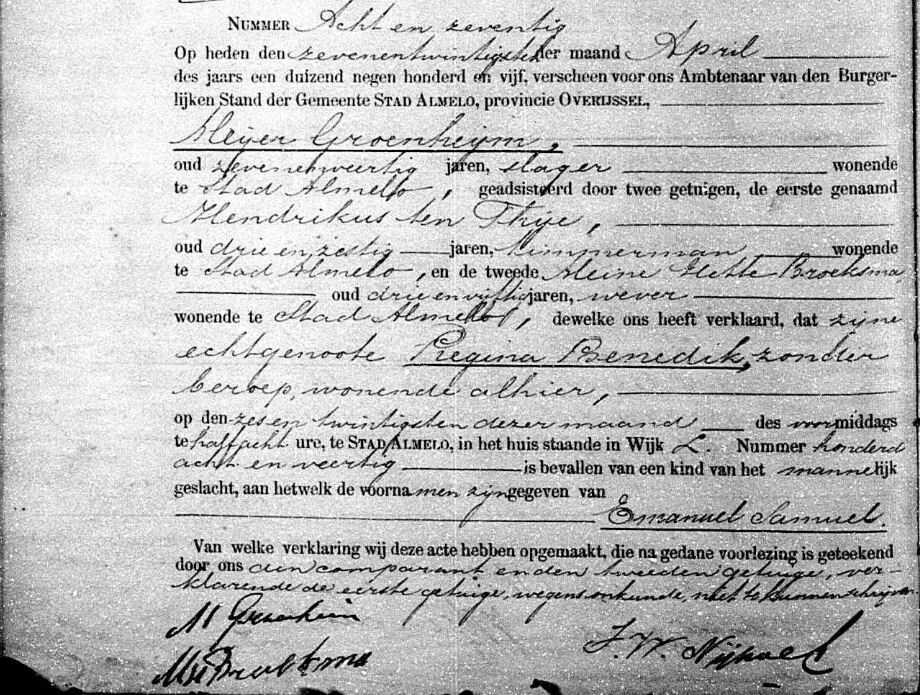 NUMMER Acht en zeventig
Op heden den zevenentwintigsten der maand April
des jaars een duizend negen honderd en vijf, verscheen voor ons Ambtenaar van den Burger-
lijken Stand der Gemeente STAD ALMELO, provincie OVERIJSSEL,
Meijer Groenheijm,
oud zevenenveertig jaren, slager wonende
te Stad Almelo, geadsisteerd door twee getuigen, de eerste genaamd
Hendrikus ten Thije,
oud drie en zestig jaren, timmerman wonende
te Stad Almelo, en de tweede Meine Hette Broeksma
oud drie en vijftig jaren, wever
wonende te Stad Almelo, dewelke ons heeft verklaard, dat zijne
echtgenoote Regina Benedik, zonder
beroep, wonende alhier,
op den zes en twintigsten dezer maand des voormiddags
te half acht ure, te STAD ALMELO, in het huis staande in Wijk L. Nummer honderd
acht en veertig is bevallen van een kind van het mannelijk
geslacht, aan hetwelk de voornamen zijn gegeven van
Emanuel Samuel.
Van welke verklaring wij deze acte hebben opgemaakt, die na gedane voorlezing is geteekend
door ons den comparant en den tweeden getuige, ver-
klarende de eerste getuige, wegens onkunde, niet te kunnen schrijven.
M
MH Broeksma